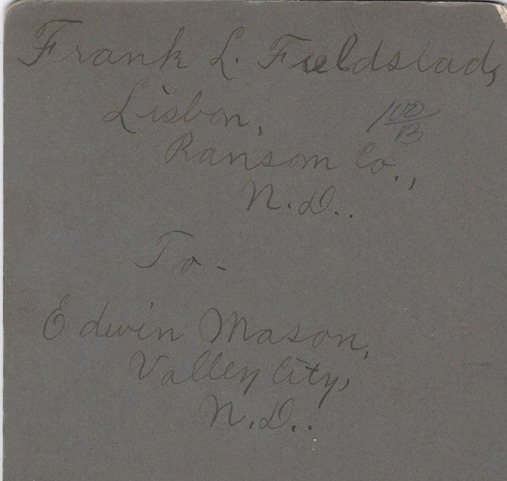 Frank L. Fjeldstad,
Lisbon,
Ransom Co.,
N.D..
To-
Edwin Mason,
Valley City,
N.D..